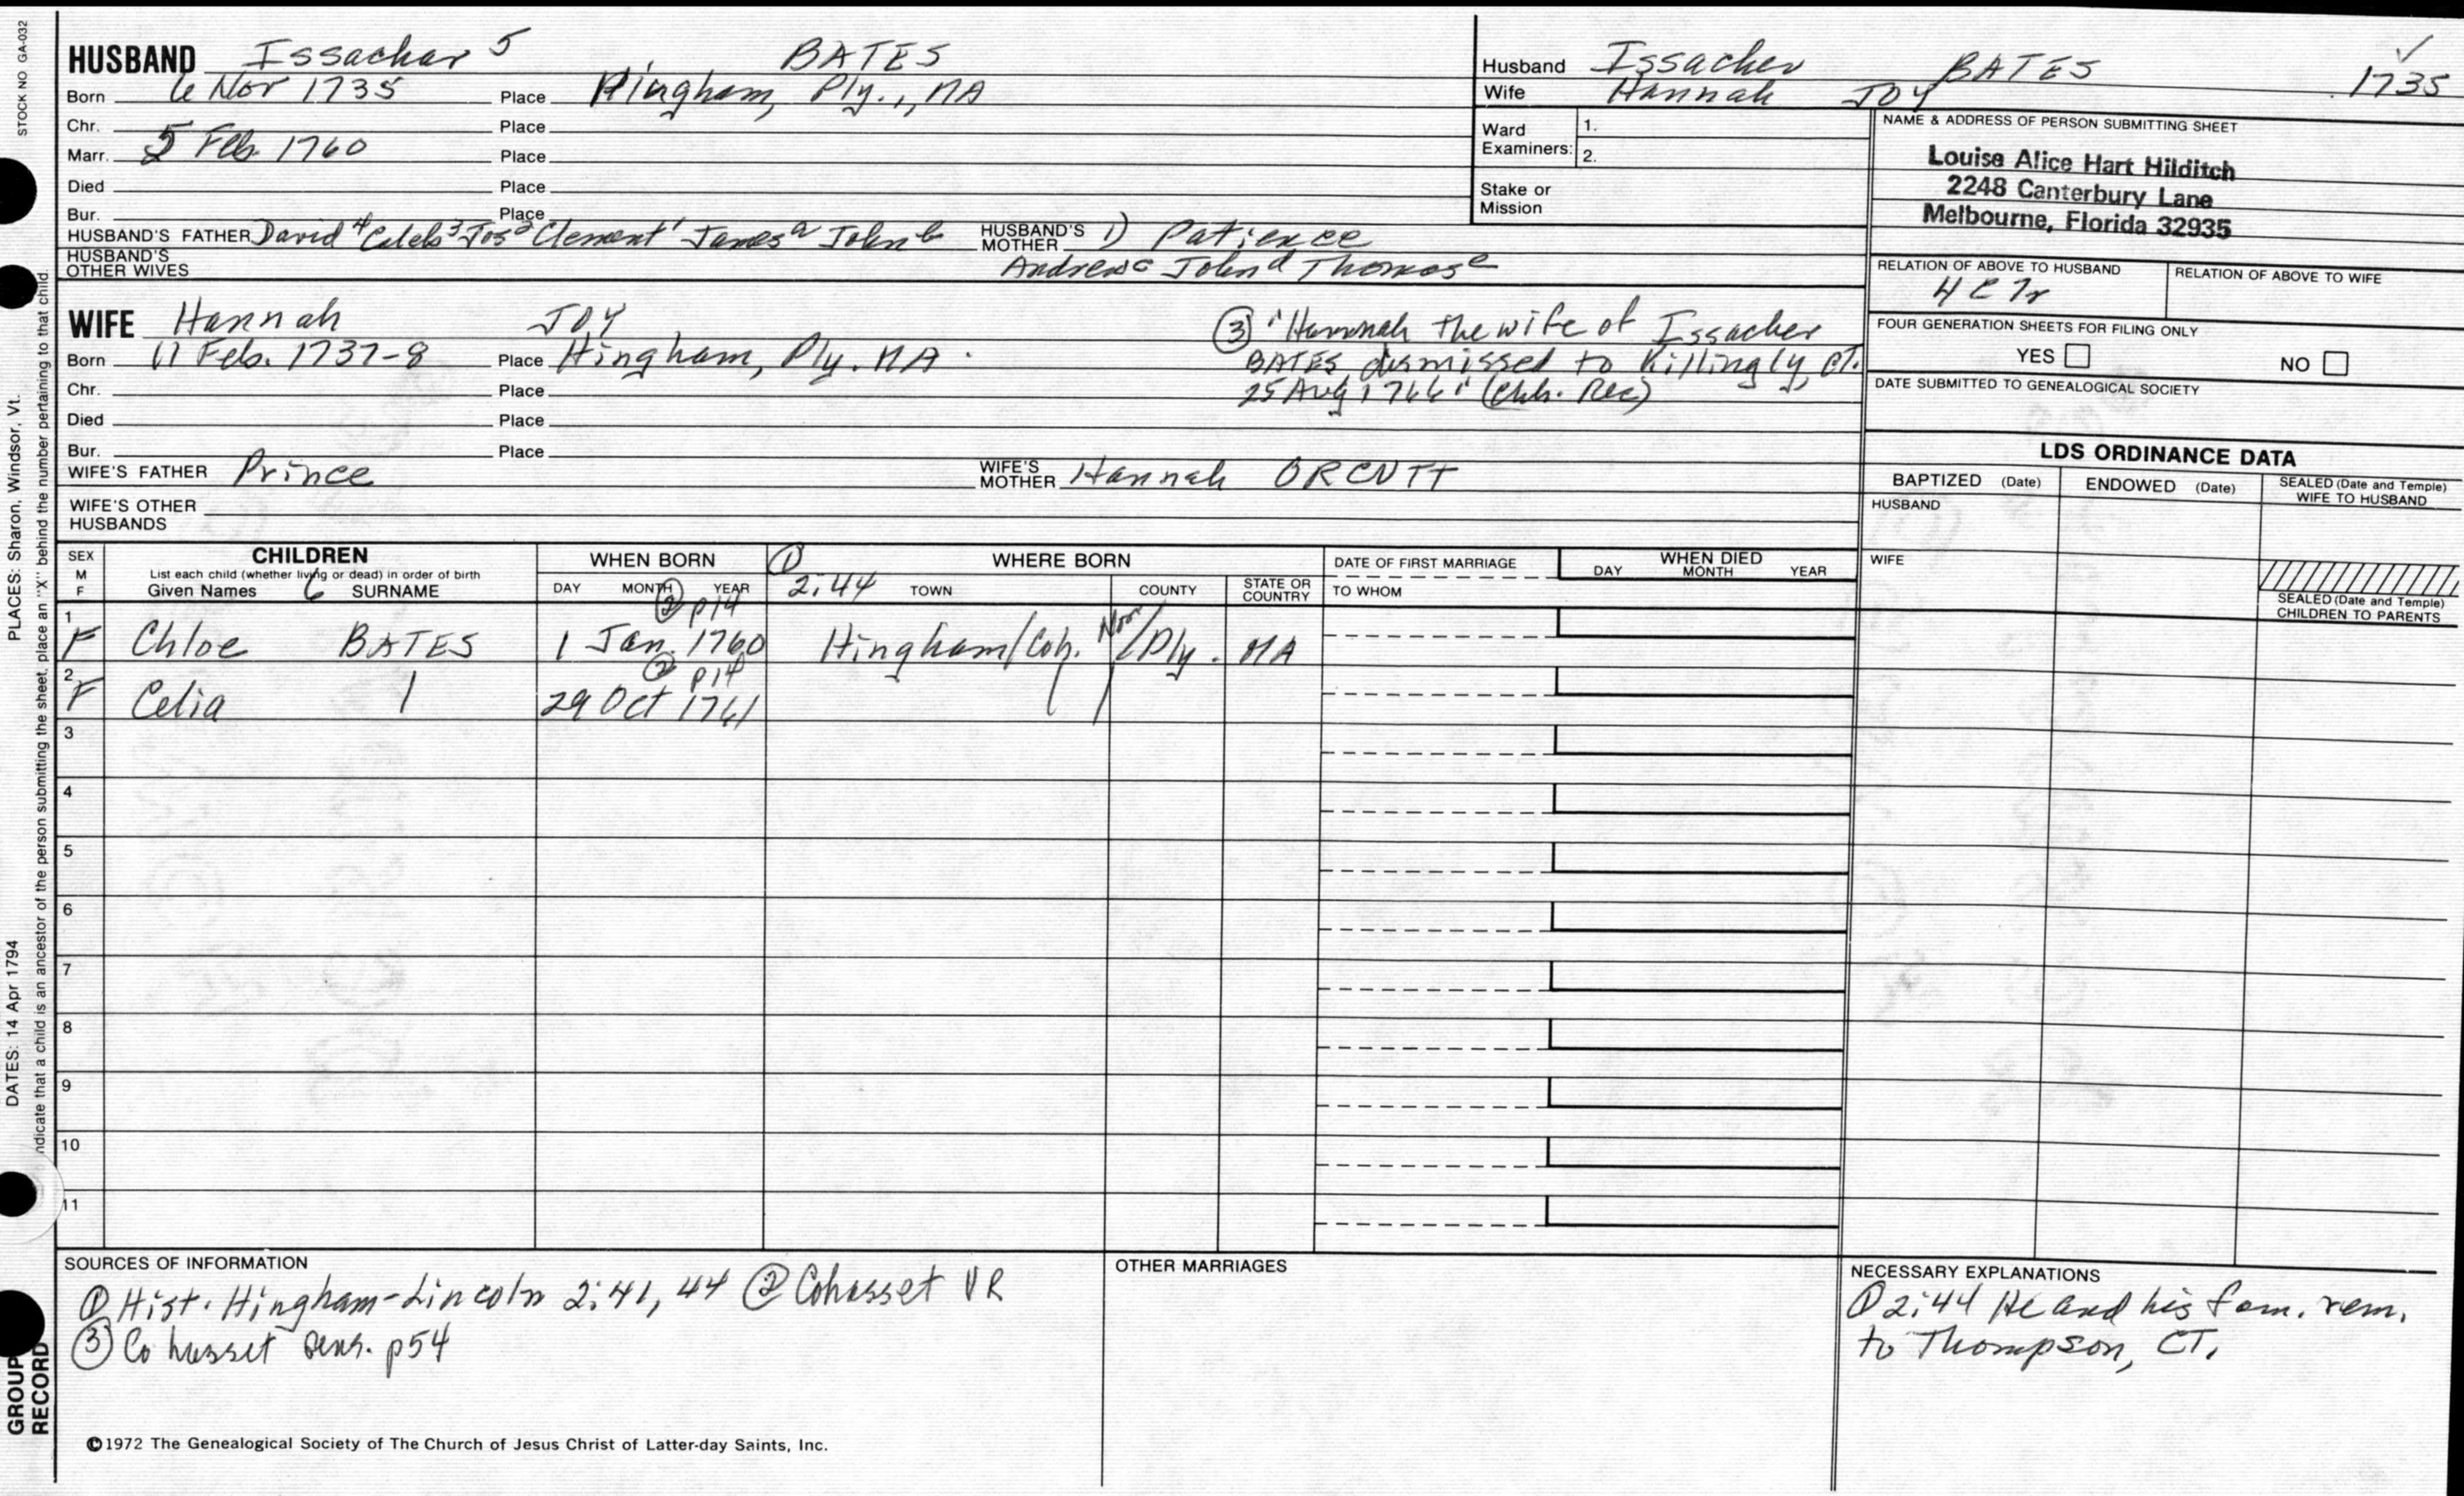 STOCK NO GA-032
PLACES: Sharon, Windsor, Vt.
DATES: 14 Apr 1794
ndicate that a child is an ancestor of the person submitting the sheet, place an "X" behind the number pertaining to that child.
GROUP
RECORD
HUSBAND Issachar 5 BATES
Born 6 Nov 1735 Place Hingham, Ply., MA
Chr. Place
Marr. 5 Feb. 1760 Place
Died Place
Bur. Place
HUSBAND'S FATHER David 4 Caleb 3 Jos 2 Clement 1 James a John b HUSBAND'S MOTHER 1) Patience
HUSBAND'S OTHER WIVES Andrew c John d Thomas e
Husband Issacher BATES 1735
Wife Hannah JOY
Ward Examiners: 1.
2.
Stake or Mission
NAME & ADDRESS OF PERSON SUBMITTING SHEET
Louise Alice Hart Hilditch
2248 Canterbury Lane
Melbourne, Florida 32935
RELATION OF ABOVE TO HUSBAND RELATION OF ABOVE TO WIFE
4C7r
FOUR GENERATION SHEETS FOR FILING ONLY
YES NO
DATE SUBMITTED TO GENEALOGICAL SOCIETY
WIFE Hannah JOY
Born 11 Feb. 1737-8 Place Hingham, Ply. MA.
Chr. Place
Died Place
Bur. Place
③ "Hannah the wife of Issacher
BATES dismissed to Killingly, CT.
25 Aug 1766" (Chh. Rec)
WIFE'S FATHER Prince WIFE'S MOTHER Hannah ORCUTT
WIFE'S OTHER HUSBANDS
LDS ORDINANCE DATA
BAPTIZED (Date) ENDOWED (Date) SEALED (Date and Temple) WIFE TO HUSBAND
HUSBAND
WIFE
SEALED (Date and Temple)
CHILDREN TO PARENTS
SEX M F CHILDREN WHEN BORN ① WHERE BORN DATE OF FIRST MARRIAGE WHEN DIED
List each child (whether living or dead) in order of birth
Given Names 6 SURNAME DAY MONTH YEAR 2:44 TOWN COUNTY STATE OR COUNTRY TO WHOM DAY MONTH YEAR
② p14
1 F Chloe BATES 1 Jan. 1760 Hingham/Coh. Nor/Ply. MA
② p14
2 F Celia 29 Oct 1761
3
4
5
6
7
8
9
10
11
SOURCES OF INFORMATION
① Hist. Hingham-Lincoln 2:41, 44 ② Cohasset VR
③ Cohasset Gens. p54
OTHER MARRIAGES
NECESSARY EXPLANATIONS
① 2:44 He and his fam. rem.
to Thompson, CT.
©1972 The Genealogical Society of The Church of Jesus Christ of Latter-day Saints, Inc.